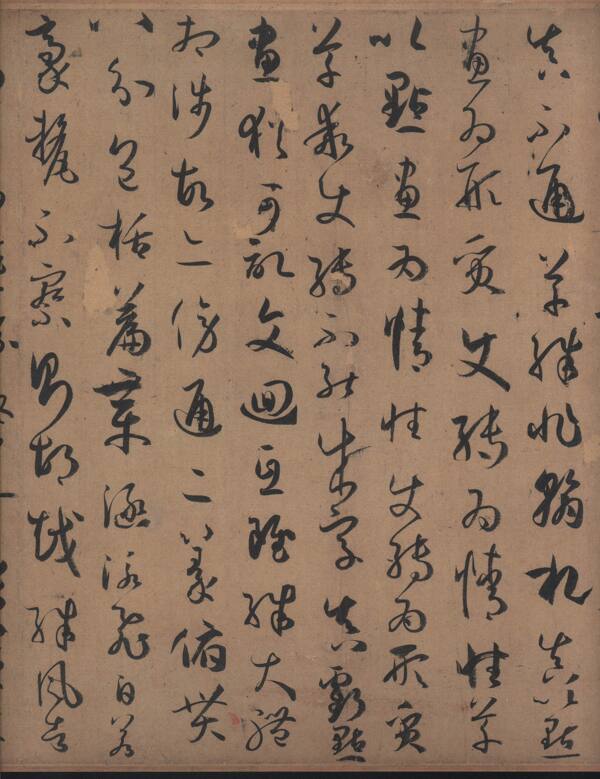 真不通草殊非翰札真以點
畫為形質使轉為情性草
以點畫為情性使轉為形質
草乖使轉不能成字真虧點
畫猶可記文迴互雖殊大體
相涉故亦傍通二篆俯貫
八分包括篇章涵泳飛白若
豪氂不察則胡越殊風者